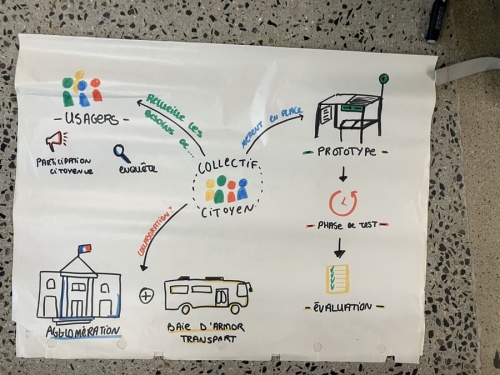 - USAGERS -
PARTICIPATION
CITOYENNE
ENQUÊTE
RECUEILLE LES
BESOINS DE...
METTENT EN PLACE
COLLECTIF
CITOYEN
COLLABORATION?
AGGLOMÉRATION
+
BAIE D'ARMOR
TRANSPORT
- PROTOTYPE -
- PHASE DE TEST -
- ÉVALUATION -